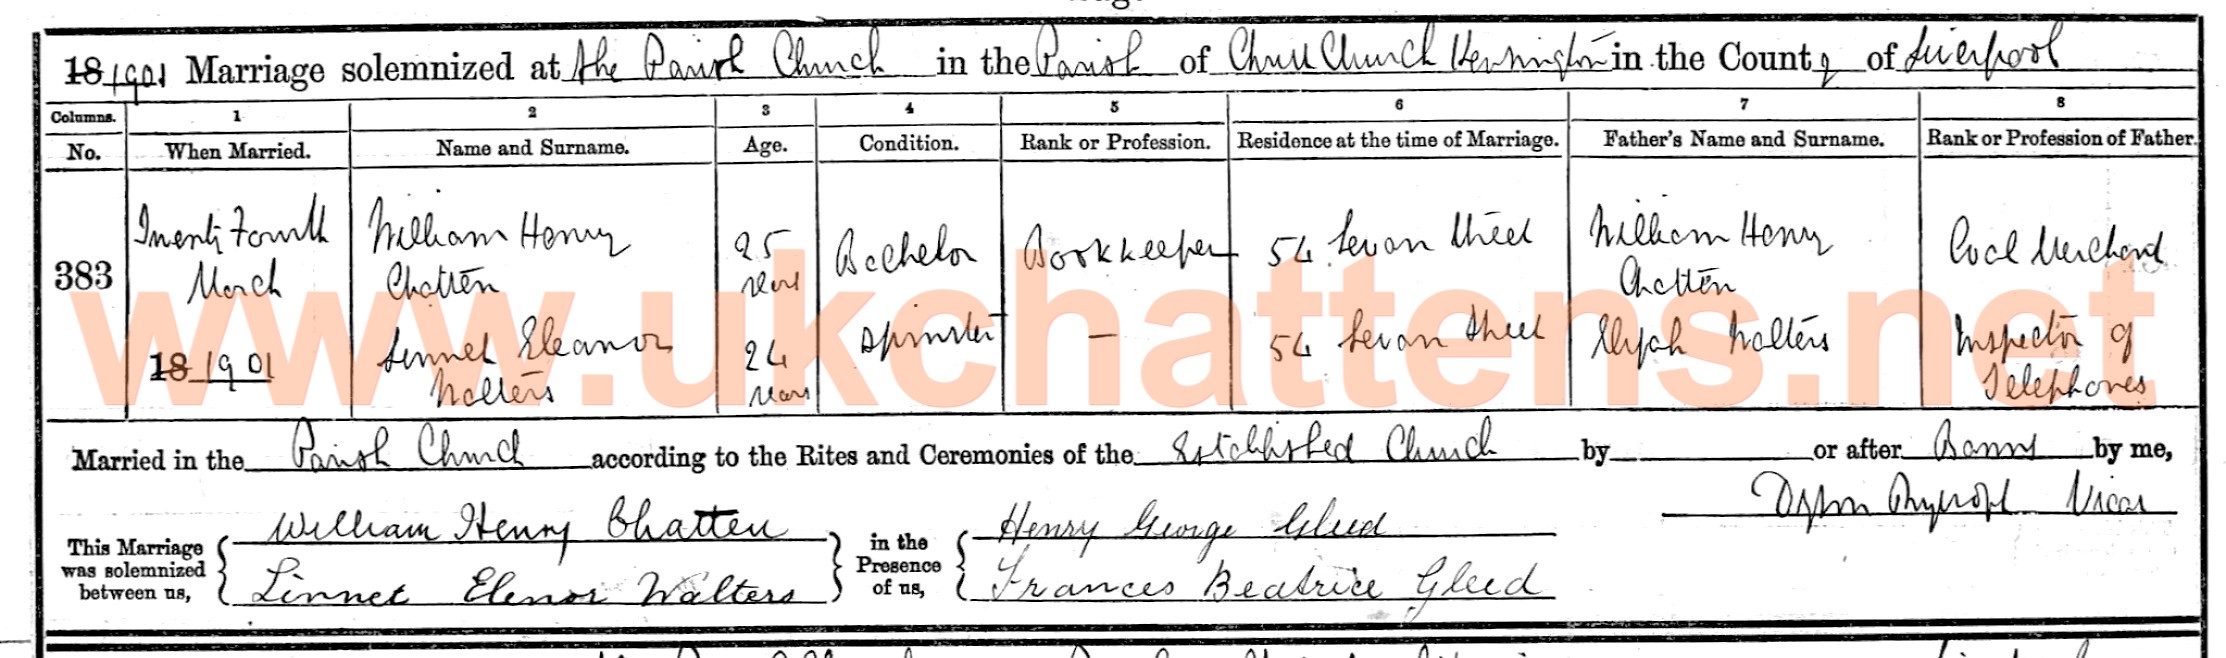 18 1901 Marriage solemnized at the Parish Church in the Parish of Christ Church Kensington in the County of Liverpool
Columns. 1 2 3 4 5 6 7 8
No. When Married. Name and Surname. Age. Condition. Rank or Profession. Residence at the time of Marriage. Father's Name and Surname. Rank or Profession of Father.
383
Twenty Fourth
March
18 1901
William Henry
Chatten
25
years
Bachelor
Bookkeeper
54 Street
William Henry
Chatten
Coal Merchant
Linnet Eleanor
Walters
24
years
Spinster
—
54 Street
Elijah Walters
Inspector of
Telephones
www.ukchattens.net
Married in the Parish Church according to the Rites and Ceremonies of the Established Church by or after Banns by me,
Vicar
This Marriage
was solemnized
between us,
William Henry Chatten
Linnet Elenor Walters
in the
Presence
of us,
Henry George Gleed
Frances Beatrice Gleed